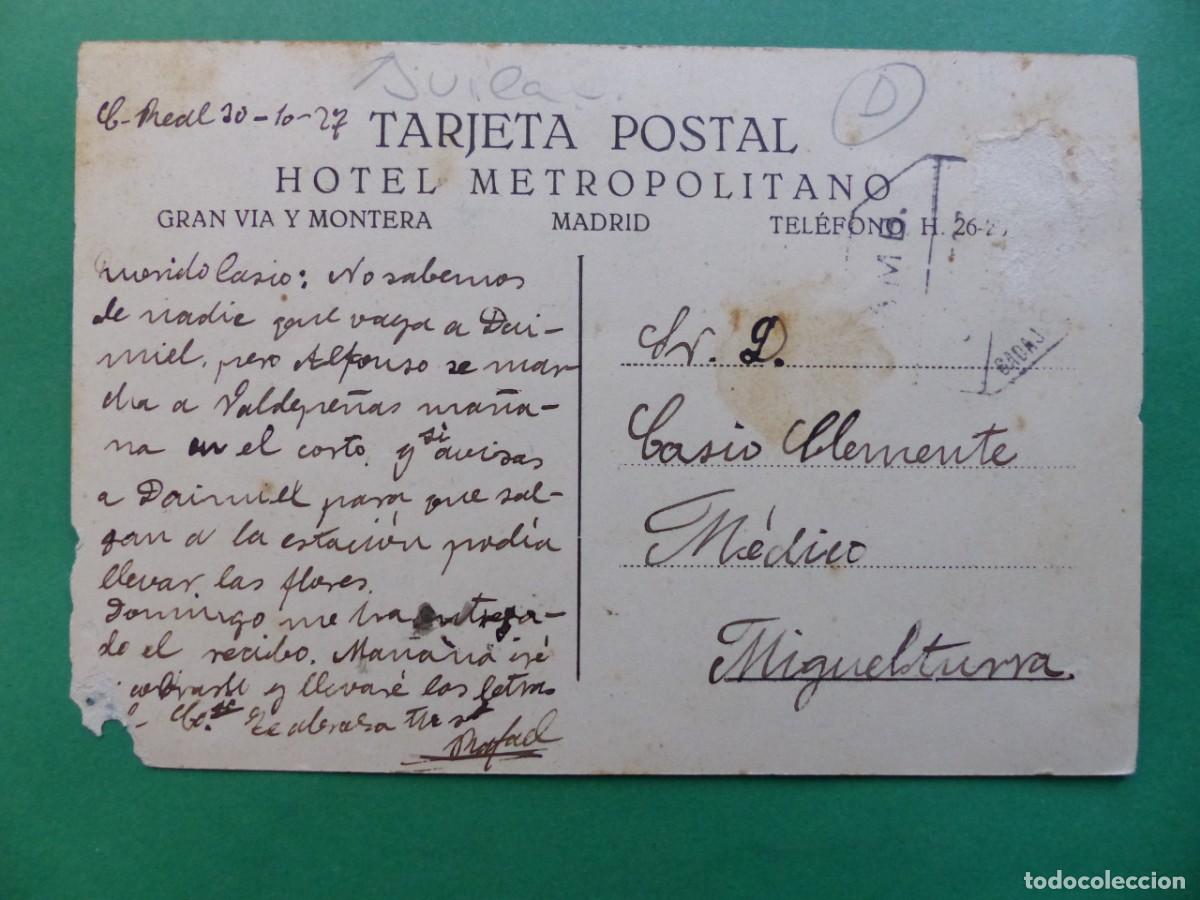 Avila
D
C. Real 30-10-27
TARJETA POSTAL
HOTEL METROPOLITANO
GRAN VIA Y MONTERA MADRID TELÉFONO H. 26-2
AMB.
BADAJ
Querido Casio: No sabemos
de nadie que vaya a Dai-
miel, pero Alfonso se mar
cha a Valdepeñas maña-
na en el corto, y si avisas
a Daimiel para que sal-
gan a la estación podía
llevar las flores.
Domingo me ha entrega-
do el recibo. Mañana iré
a cobrarle y llevaré las letras
Te abraza tu
Rafael
Sr. D.
Casio Clemente
Médico
Miguelturra.
todocoleccion